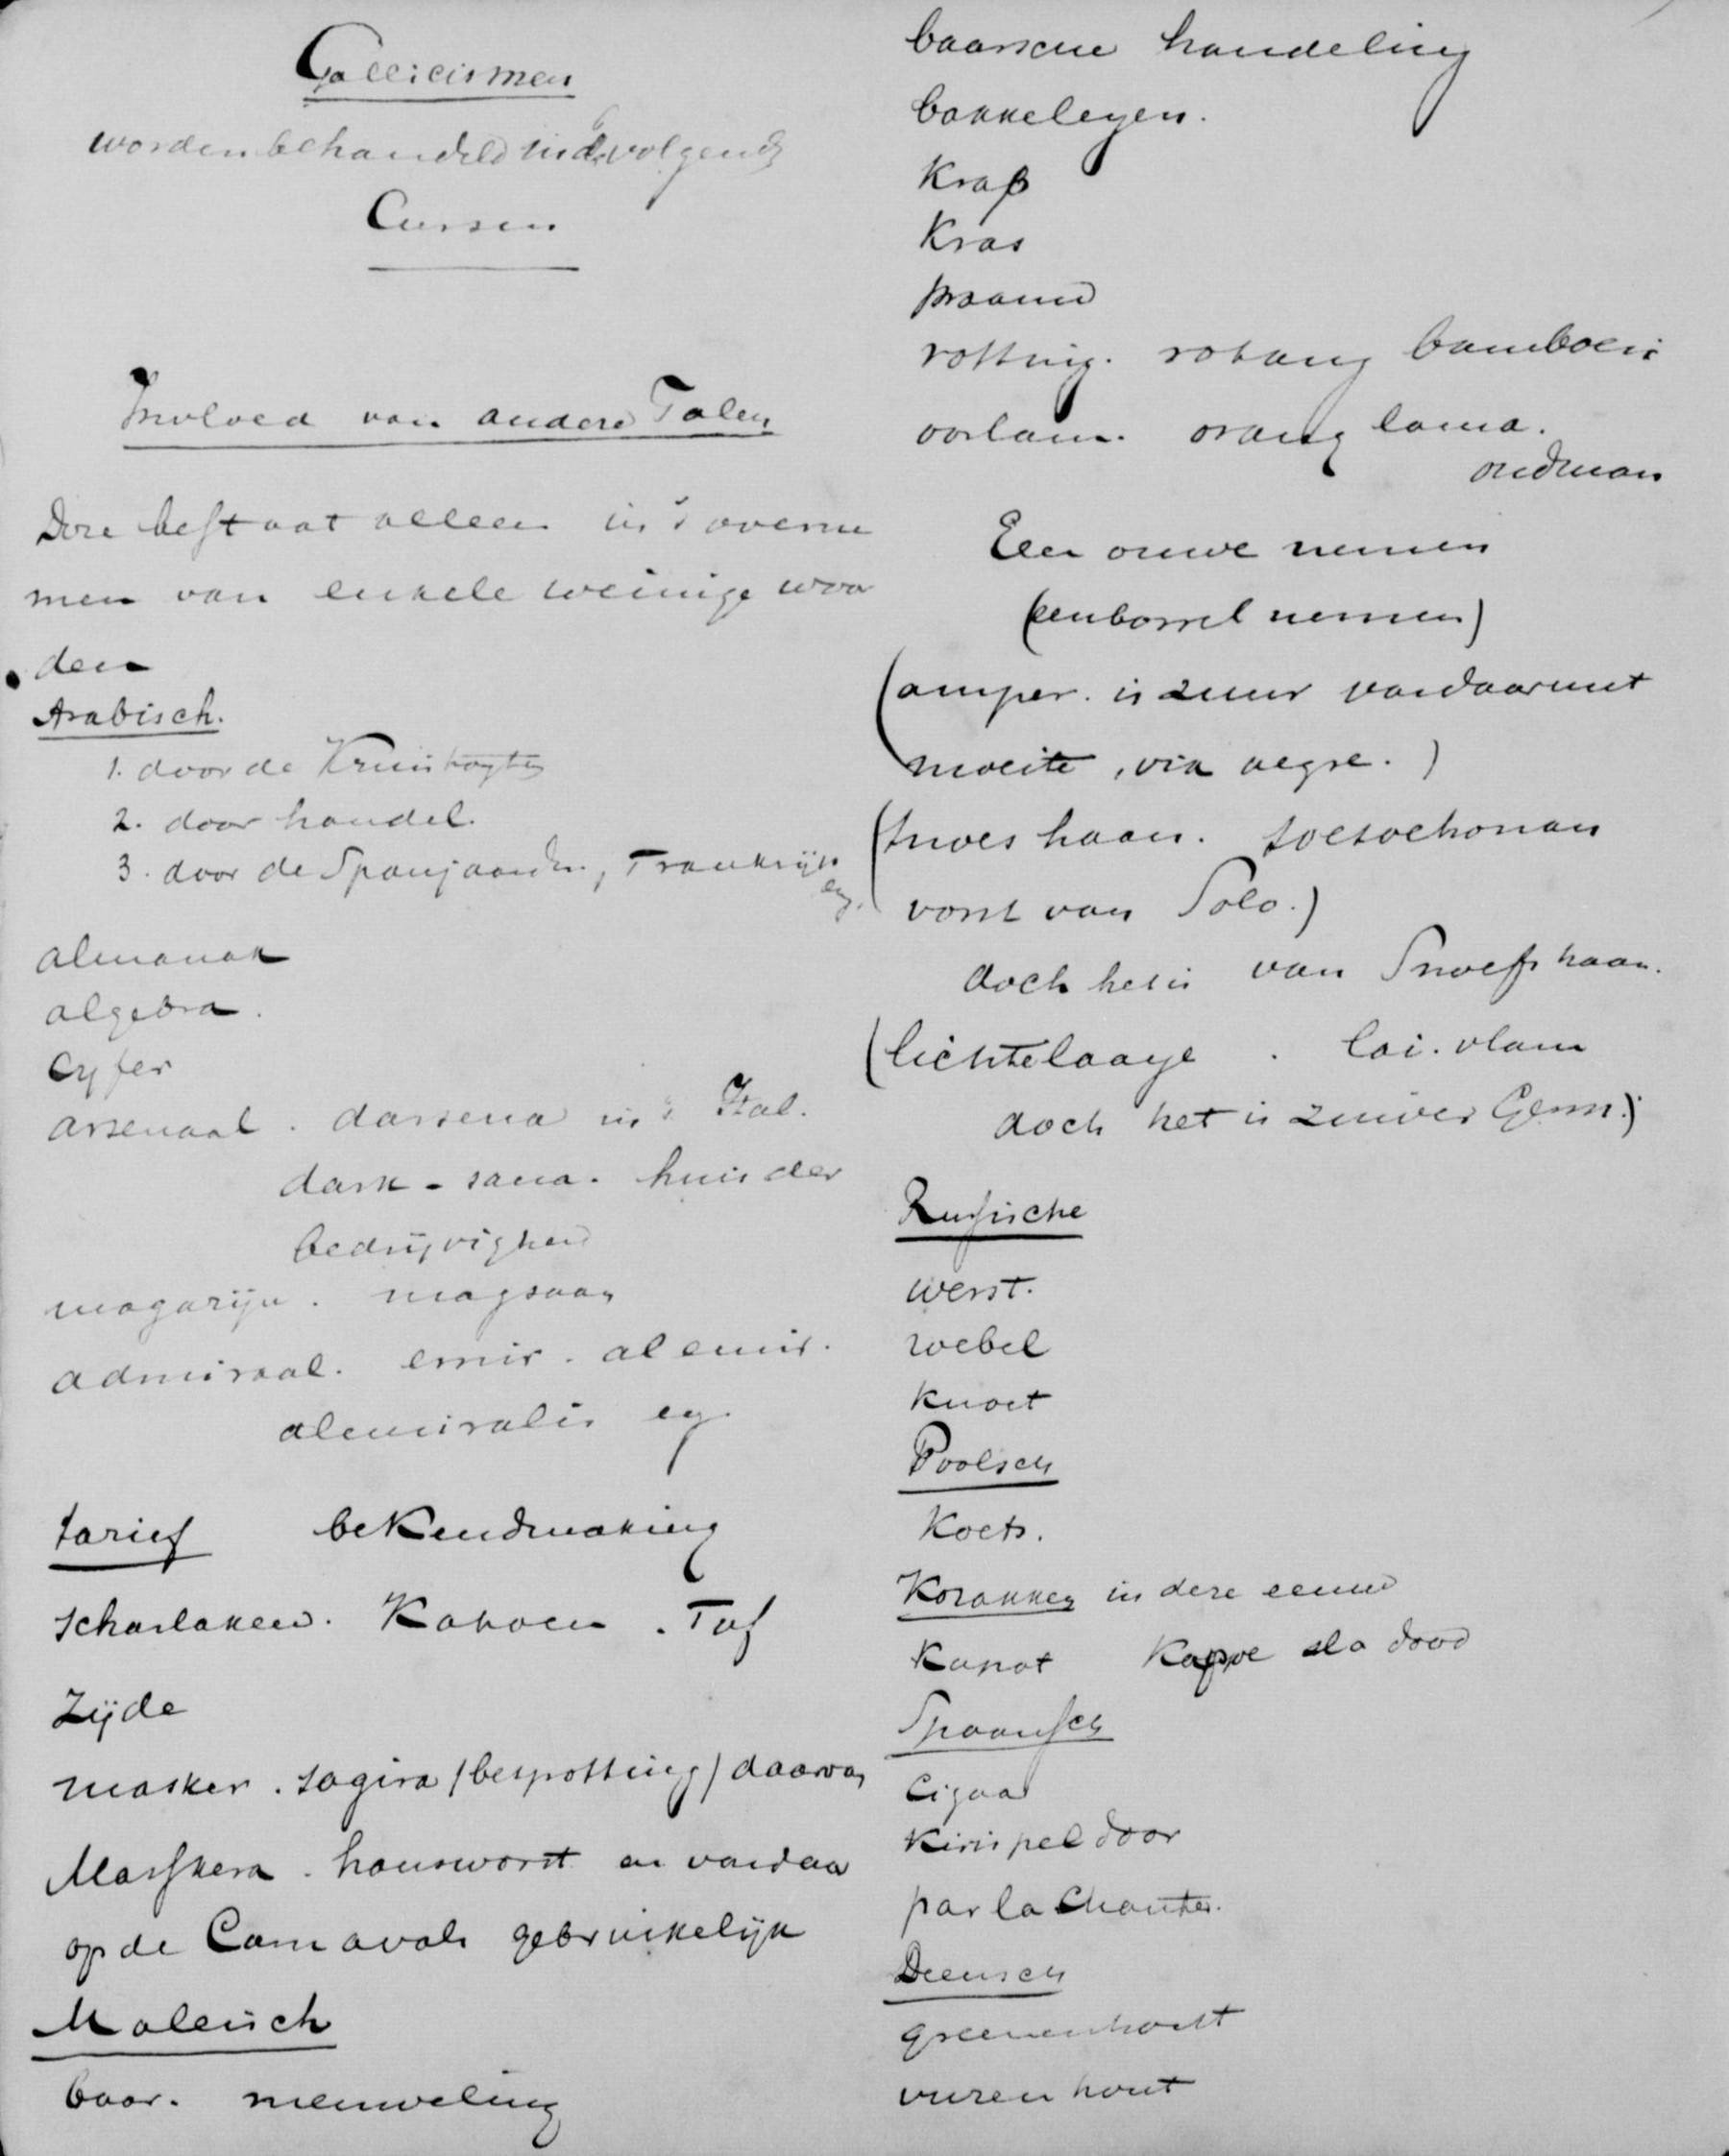 Gallicismen
worden behandeld in de volgende
Cursen
Invloed van andere Talen
Deze bestaat alleen in 't overne
men van enkele weinige woor
den
Arabisch.
1. door de Kruistogten
2. door handel.
3. door de Spanjaarden, Frankrijk
enz.
almanak
algebra.
Cyfer
arsenaal. darsena in 't Ital.
dark - sana. huis der
bedrijvigheid
magazijn. magsaan
admiraal. emir. al emir.
alemiralis enz.
tarief bekendmaking
scharlaken. Katoen. Taf
Zijde
masker. sagira (bespotting) daarvan
Maskera. hansworst en vandaar
op de Carnavals gebruikelijk
Maleisch
baar. nieuweling
baarsche handeling
bakkeleyen.
Krap
Kras
praauw
rotting. rotang bamboes
oorlam. orang lama.
oudman
Een ouwe nemen
(een borrel nemen)
(amper. is zuur vandaar met
moeite, vix aegre.)
(snoeshaan. soesoehonan
vorst van Solo.)
doch het is van Snoefhaan.
(lichtelaaye. lai. vlam
doch het is zuiver Germ.)
Russische
werst.
zoebel
knoet
Poolsch
Koets.
Kozakken in deze eeuw
Kapot Kappoe sla dood
Spaansch
Cigaar
Kirispeldoor
par la Chanter.
Deensch
greenenhout
vurenhout